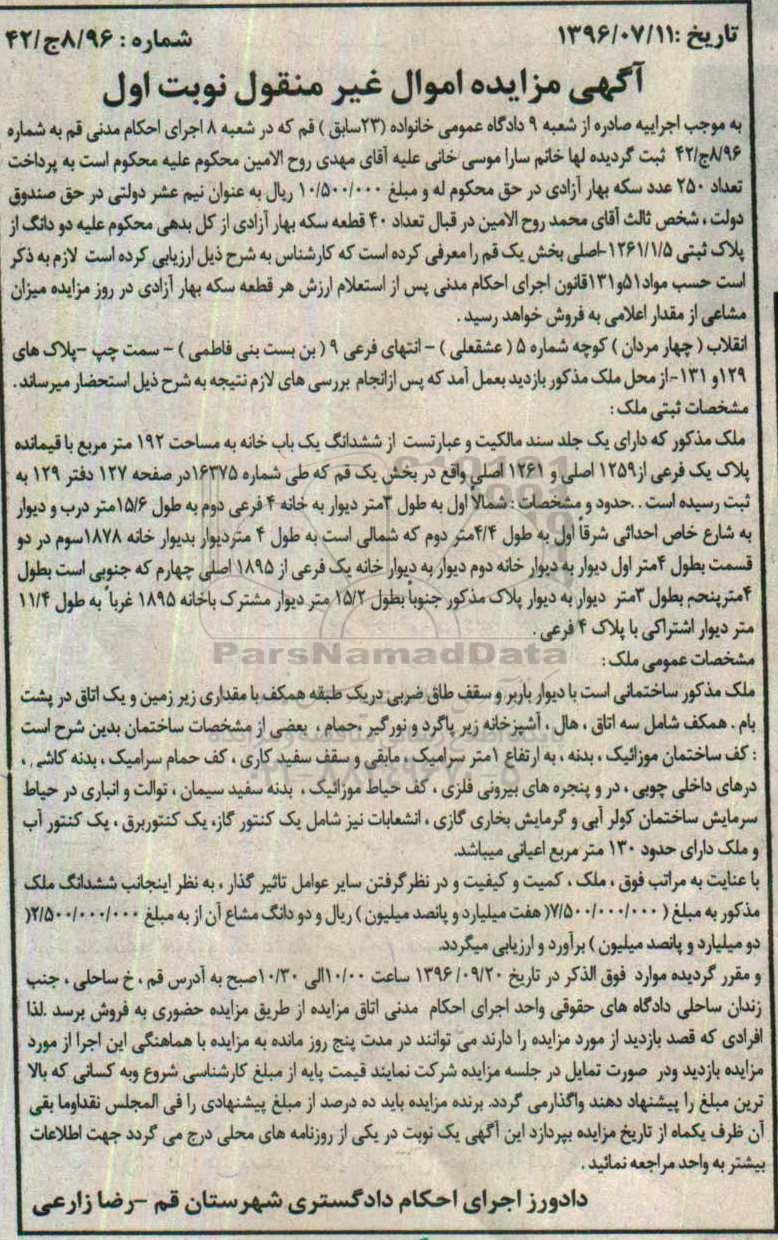 تاریخ :۱۳۹۶/۰۷/۱۱
شماره : ۴۲/ج۸/۹۶
آگهی مزایده اموال غیر منقول نوبت اول
به موجب اجراییه صادره از شعبه ۹ دادگاه عمومی خانواده (۲۳سابق ) قم که در شعبه ۸ اجرای احکام مدنی قم به شماره
۴۲/ج۸/۹۶ ثبت گردیده لها خانم سارا موسی خانی علیه آقای مهدی روح الامین محکوم علیه محکوم است به پرداخت
تعداد ۲۵۰ عدد سکه بهار آزادی در حق محکوم له و مبلغ ۱۰/۵۰۰/۰۰۰ ریال به عنوان نیم عشر دولتی در حق صندوق
دولت ، شخص ثالث آقای محمد روح الامین در قبال تعداد ۴۰ قطعه سکه بهار آزادی از کل بدهی محکوم علیه دو دانگ از
پلاک ثبتی ۱۲۶۱/۱/۵-اصلی بخش یک قم را معرفی کرده است که کارشناس به شرح ذیل ارزیابی کرده است لازم به ذکر
است حسب مواد۵۱و۱۳۱قانون اجرای احکام مدنی پس از استعلام ارزش هر قطعه سکه بهار آزادی در روز مزایده میزان
مشاعی از مقدار اعلامی به فروش خواهد رسید .
انقلاب ( چهار مردان ) کوچه شماره ۵ ( عشقعلی ) – انتهای فرعی ۹ ( بن بست بنی فاطمی ) – سمت چپ –پلاک های
۱۲۹و ۱۳۱-از محل ملک مذکور بازدید بعمل آمد که پس ازانجام بررسی های لازم نتیجه به شرح ذیل استحضار میرساند .
مشخصات ثبتی ملک :
ملک مذکور که دارای یک جلد سند مالکیت و عبارتست از ششدانگ یک باب خانه به مساحت ۱۹۲ متر مربع با قیمانده
پلاک یک فرعی از۱۲۵۹ اصلی و ۱۲۶۱ اصلی واقع در بخش یک قم که طی شماره ۱۶۳۷۵در صفحه ۱۲۷ دفتر ۱۲۹ به
ثبت رسیده است . .حدود و مشخصات : شمالاً اول به طول ۳متر دیوار به خانه ۴ فرعی دوم به طول ۱۵/۶متر درب و دیوار
به شارع خاص احداثی شرقاً اول به طول ۴/۴متر دوم که شمالی است به طول ۴ متردیوار بدیوار خانه ۱۸۷۸سوم در دو
قسمت بطول ۴متر اول دیوار به دیوار خانه دوم دیوار به دیوار خانه یک فرعی از ۱۸۹۵ اصلی چهارم که جنوبی است بطول
۴مترپنجم بطول ۳متر دیوار به دیوار پلاک مذکور جنوباً بطول ۱۵/۲ متر دیوار مشترک باخانه ۱۸۹۵ غرباً به طول ۱۱/۴
متر دیوار اشتراکی با پلاک ۴ فرعی .
ParsNamadData
مشخصات عمومی ملک :
ملک مذکور ساختمانی است با دیوار باربر و سقف طاق ضربی دریک طبقه همکف با مقداری زیر زمین و یک اتاق در پشت
بام . همکف شامل سه اتاق ، هال ، آشپزخانه زیر پاگرد و نورگیر ،حمام ، بعضی از مشخصات ساختمان بدین شرح است
: کف ساختمان موزائیک ، بدنه ، به ارتفاع ۱متر سرامیک ، مابقی و سقف سفید کاری ، کف حمام سرامیک ، بدنه کاشی ،
درهای داخلی چوبی ، در و پنجره های بیرونی فلزی ، کف حیاط موزائیک ، بدنه سفید سیمان ، توالت و انباری در حیاط
سرمایش ساختمان کولر آبی و گرمایش بخاری گازی ، انشعابات نیز شامل یک کنتور گاز، یک کنتوربرق ، یک کنتور آب
و ملک دارای حدود ۱۳۰ متر مربع اعیانی میباشد.
با عنایت به مراتب فوق ، ملک ، کمیت و کیفیت و در نظرگرفتن سایر عوامل تاثیر گذار ، به نظر اینجانب ششدانگ ملک
مذکور به مبلغ ( ۷/۵۰۰/۰۰۰/۰۰۰( هفت میلیارد و پانصد میلیون ) ریال و دو دانگ مشاع آن از به مبلغ ۲/۵۰۰/۰۰۰/۰۰۰(
دو میلیارد و پانصد میلیون ) برآورد و ارزیابی میگردد.
و مقرر گردیده موارد فوق الذکر در تاریخ ۱۳۹۶/۰۹/۲۰ ساعت ۱۰/۰۰الی ۱۰/۳۰صبح به آدرس قم ، خ ساحلی ، جنب
زندان ساحلی دادگاه های حقوقی واحد اجرای احکام مدنی اتاق مزایده از طریق مزایده حضوری به فروش برسد .لذا
افرادی که قصد بازدید از مورد مزایده را دارند می توانند در مدت پنج روز مانده به مزایده با هماهنگی این اجرا از مورد
مزایده بازدید ودر صورت تمایل در جلسه مزایده شرکت نمایند قیمت پایه از مبلغ کارشناسی شروع وبه کسانی که بالا
ترین مبلغ را پیشنهاد دهند واگذارمی گردد. برنده مزایده باید ده درصد از مبلغ پیشنهادی را فی المجلس نقداوما بقی
آن ظرف یکماه از تاریخ مزایده بپردازد این آگهی یک نوبت در یکی از روزنامه های محلی درج می گردد جهت اطلاعات
بیشتر به واحد مراجعه نمائید .
دادورز اجرای احکام دادگستری شهرستان قم –رضا زارعی